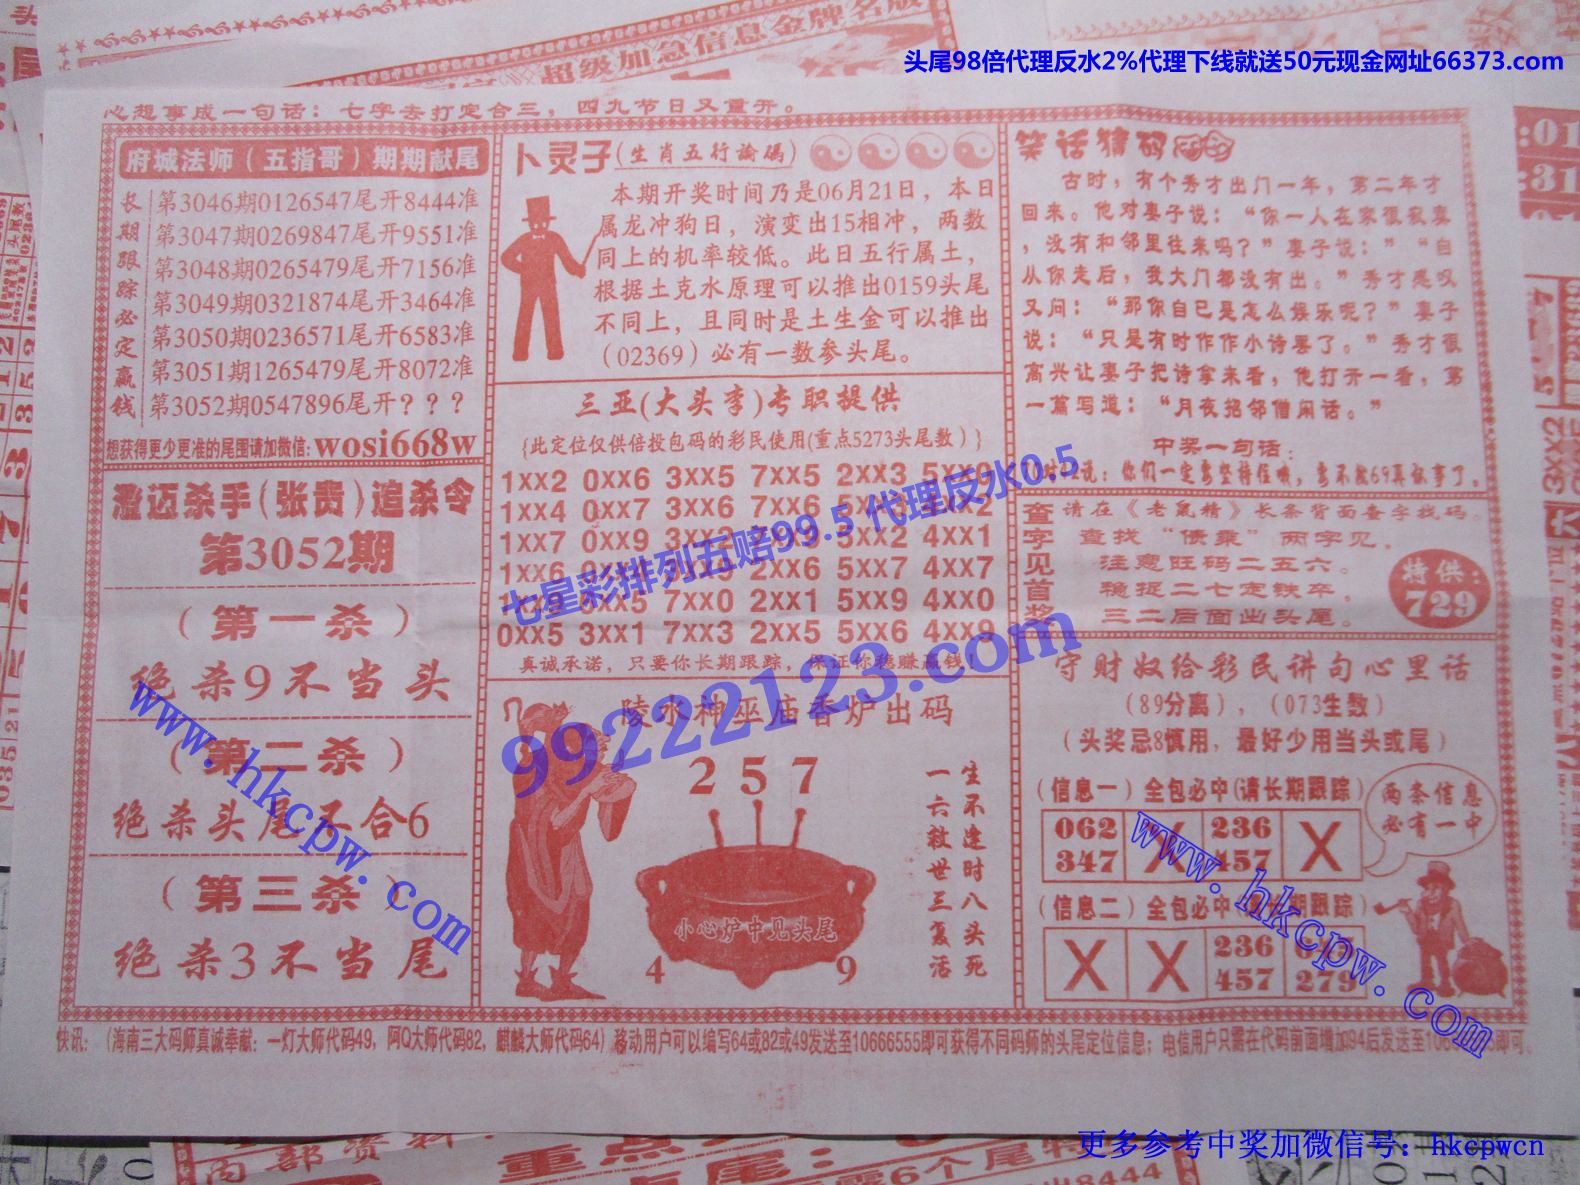 头尾98倍代理反水2%代理下线就送50元现金网址66373.com
超级加急信息金牌名版
心想事成一句话：七字去打定合三，四九节日又重开。
府城法师（五指哥）期期献尾
长期跟踪必定赢钱
第3046期0126547尾开8444准
第3047期0269847尾开9551准
第3048期0265479尾开7156准
第3049期0321874尾开3464准
第3050期0236571尾开6583准
第3051期1265479尾开8072准
第3052期0547896尾开？？？
想获得更少更准的尾围请加微信:wosi668w
澄迈杀手(张贵)追杀令
第3052期
（第一杀）
绝杀9不当头
（第二杀）
绝杀头尾不合6
（第三杀）
绝杀3不当尾
卜灵子(生肖五行論碼)
本期开奖时间乃是06月21日，本日
属龙冲狗日，演变出15相冲，两数
同上的机率较低。此日五行属土，
根据土克水原理可以推出0159头尾
不同上，且同时是土生金可以推出
（02369）必有一数参头尾。
三亚(大头李)专职提供
{此定位仅供倍投包码的彩民使用(重点5273头尾数)}
1xx2 0xx6 3xx5 7xx5 2xx3 5xx9
1xx4 0xx7 3xx6 7xx6
1xx7 0xx9 3xx2 5xx2 4xx1
1xx6 2xx6 5xx7 4xx7
1xx9 0xx5 7xx0 2xx1 5xx9 4xx0
0xx5 3xx1 7xx3 2xx5 5xx6 4xx9
真诚承诺，只要你长期跟踪，保证你稳赚赢钱！
陵水神巫庙香炉出码
257
小心炉中见头尾
4 9
生不逢时八头死
一六救世三复活
笑话猜码
古时，有个秀才出门一年，第二年才
回来。他对妻子说：“你一人在家很寂寞
，没有和邻里往来吗？”妻子说：”“自
从你走后，我大门都没有出。”秀才感叹
又问：“那你自已是怎么娱乐呢？”妻子
说：“只是有时作作小诗罢了。”秀才很
高兴让妻子把诗拿来看，他打开一看，第
一篇写道：“月夜招邻僧闲话。”
中奖一句话：
查字见首奖
请在《老鼠精》长条背面查字找码。
查找“债乘”两字见，
注意旺码二五六。
稳捉二七定铁卒。
三二后面出头尾。
特供：
729
守财奴给彩民讲句心里话
（89分离），（073生数）
（头奖忌8慎用，最好少用当头或尾）
（信息一）全包必中(请长期跟踪)
062 X 236 X
347 457
两条信息
必有一中
（信息二）全包必中
X X 236
457 279
快讯：（海南三大码师真诚奉献：一灯大师代码49，阿Q大师代码82，麒麟大师代码64）移动用户可以编写64或82或49发送至10666555即可获得不同码师的头尾定位信息；电信用户只需在代码前面增加94后发送至10666555即可。
七星彩排列五赔99.5 代理反水0.5
99222123.com
www.hkcpw.com
www.hkcpw.com
内部资料
更多参考中奖加微信号：hkcpwcn